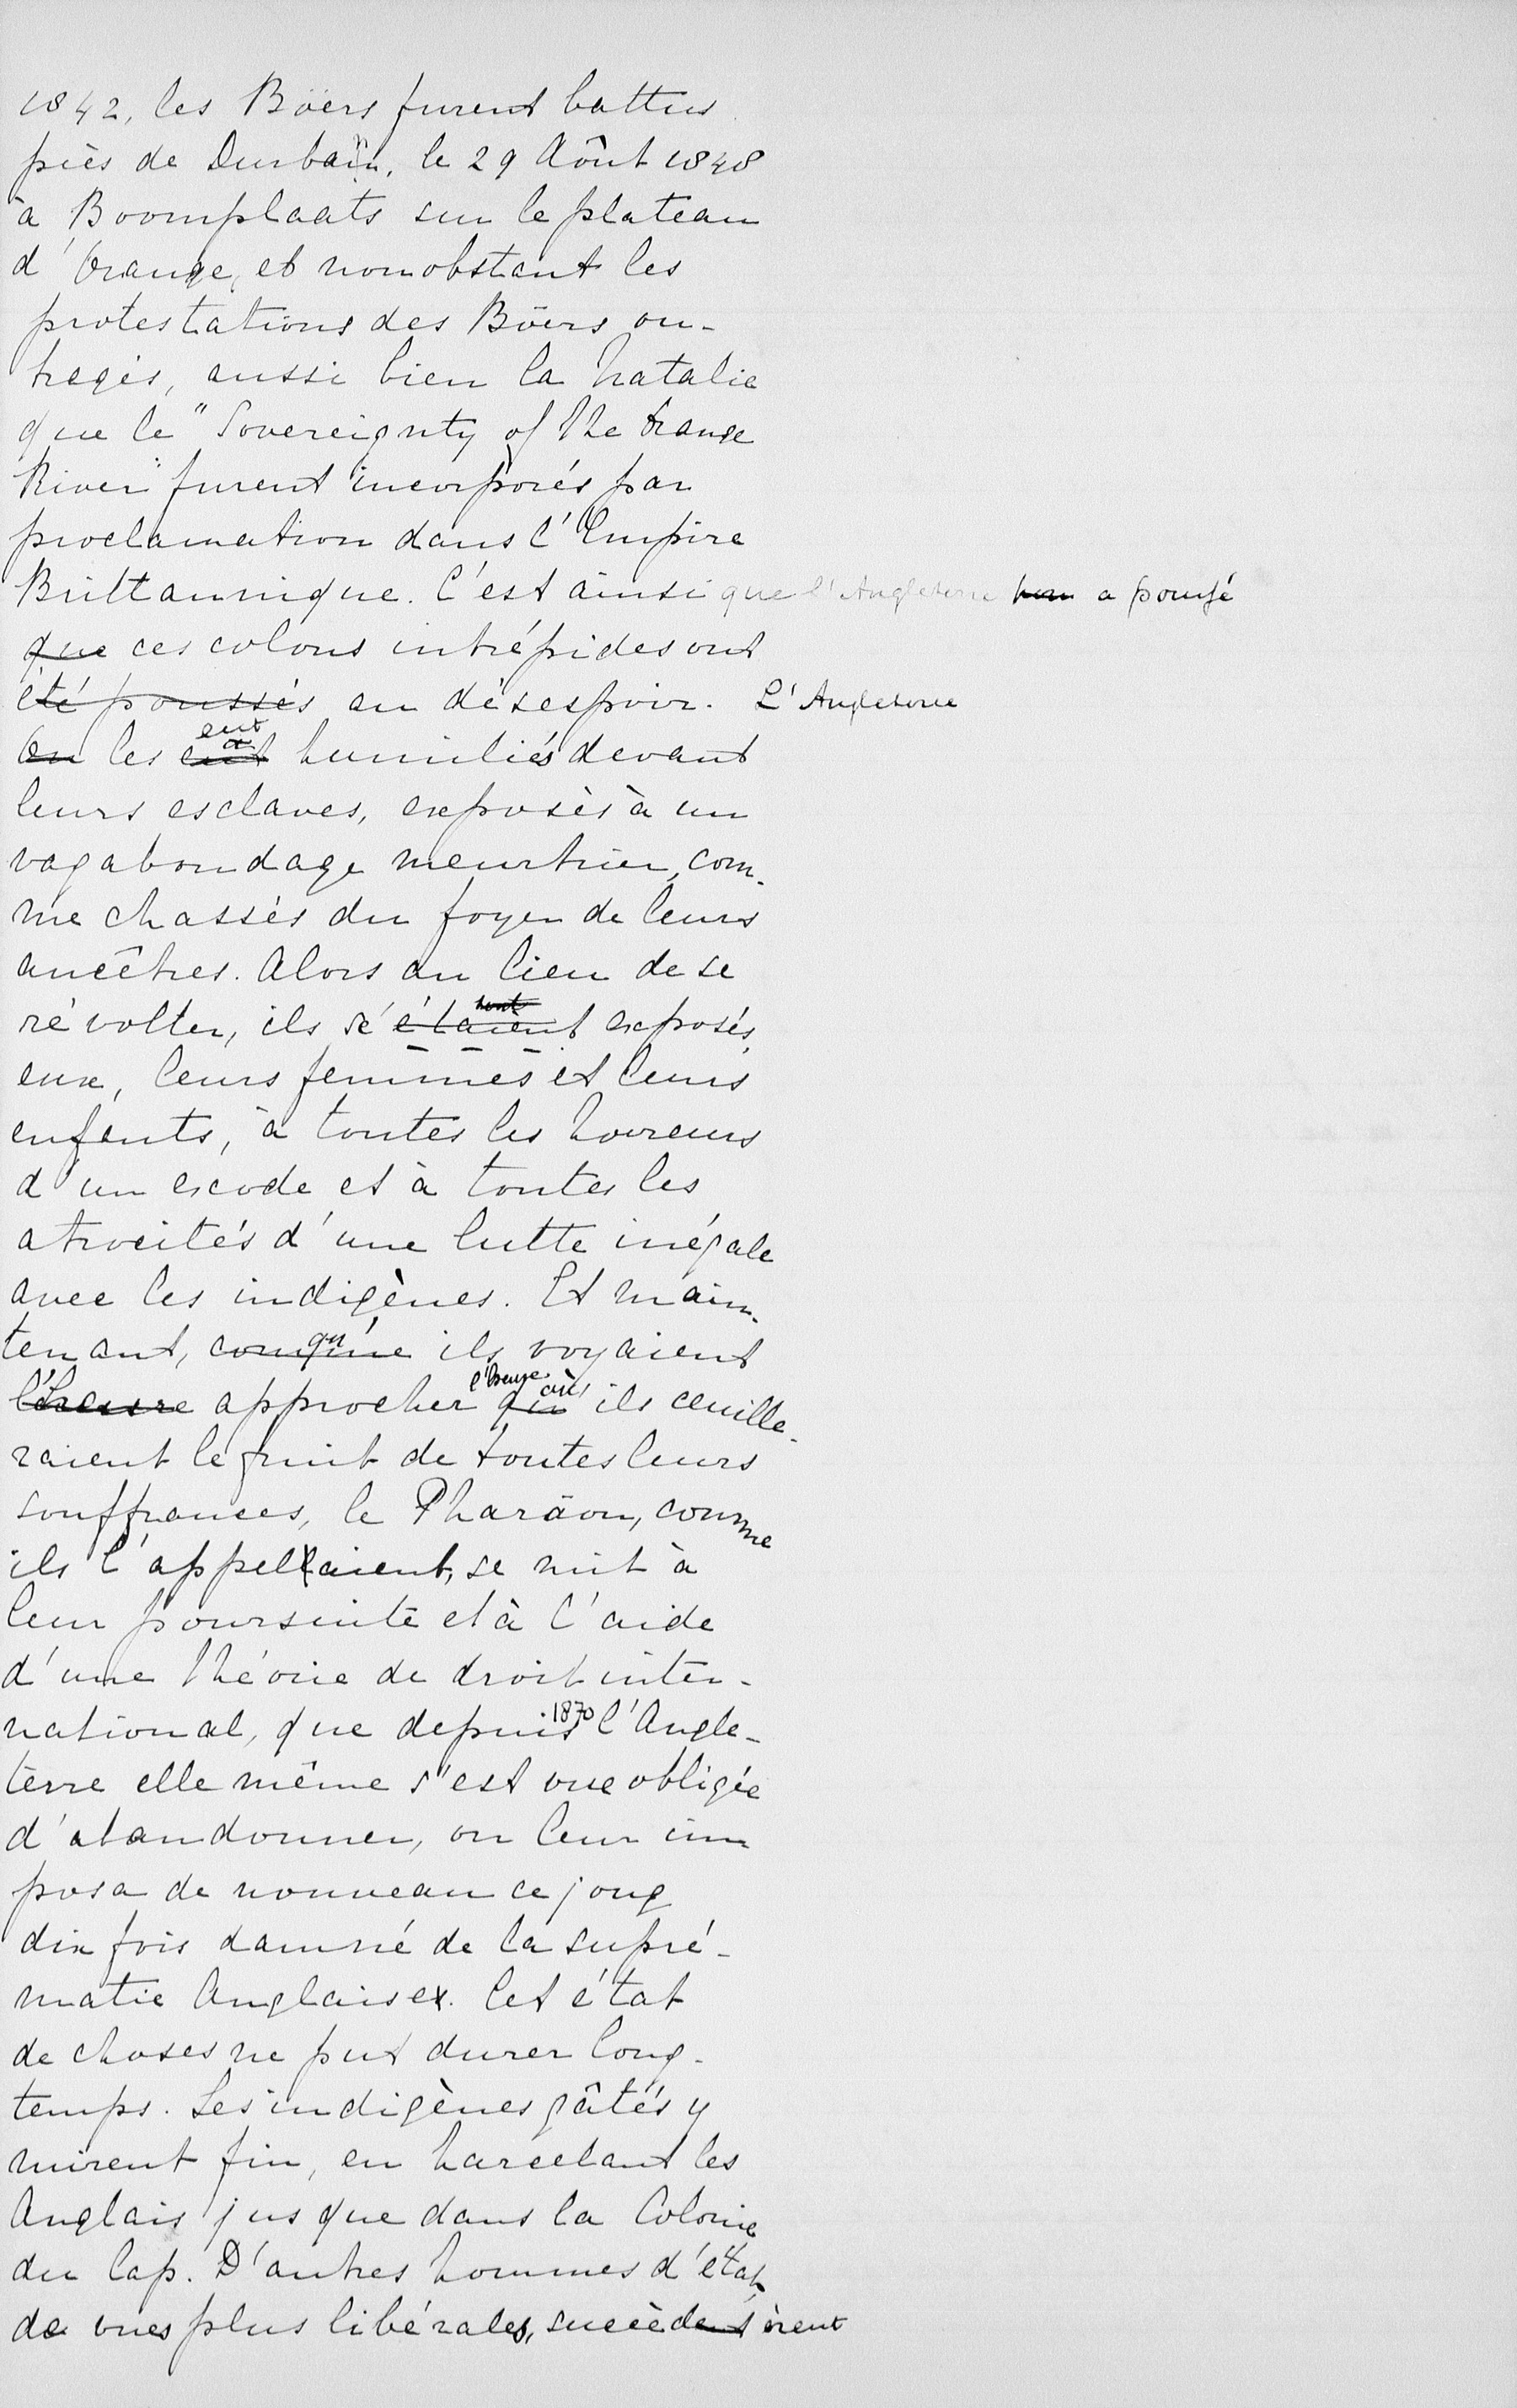 1842, les Böers furent battus
près de Durban, le 29 Aôut 1848
à Boomplaats sur le plateau
d'Orange, et nonobstant les
protestations des Böers ou-
tragés, aussi bien la Natalie
que le "Sovereignty of the Orange
River" furent incorporés par
proclamation dans l'Empire
Brittannique. C'est ainsi que l'Angleterre a poussé
que ces colons intrépides ont
été poussés au désespoir. L'Angleterre
On les eut a humiliés devant
leurs esclaves, exposés à un
vagabondage meurtrier, com-
me chassés du foyer de leurs
ancêtres. Alors au lieu de se
révolter, ils s'étaient sont exposés,
eux, leurs femmes et leurs
enfants, à toutes les horreurs
d'un exode et à toutes les
atrocités d'une lutte inégale
avec les indigènes. Et main-
tenant, comme qu' ils voyaient
l'heure approcher l'heure qu' où ils cueille-
raient le fruit de toutes leurs
souffrances, le Pharäon, comme
ils l'appellaient, se mit à
leur poursuite et à l'aide
d'une théorie de droit inter-
national, que depuis 1870 l'Angle-
terre elle même s'est vue obligée
d'abandonner, on leur im
posa de nouveau ce joug
dix fois damné de la supré-
matie Anglaise. Cet état
de choses ne put durer long-
temps. Les indigènes gâtés y
mirent fin, en harcelant les
Anglais jusque dans la Colonie
du Cap. D'autres hommes d'état,
de vues plus libérales, succèdent èrent